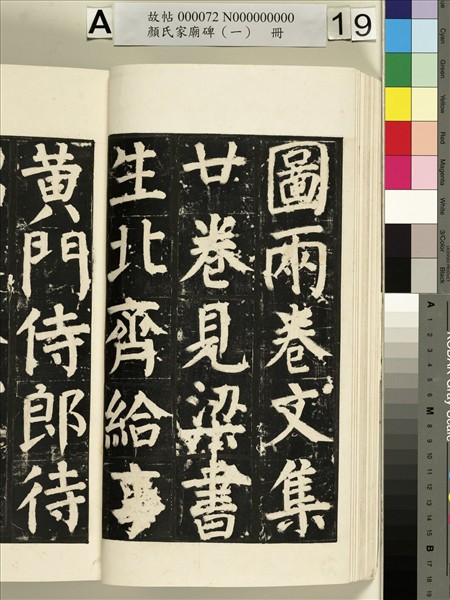 A
故帖 000072 N000000000
顏氏家廟碑（一） 冊
19
圖兩卷文集
廿卷見梁書
生北齊給事
黃門侍郎待
Cyan
Green
Yellow
Red
Magenta
White
3/Color
Black
A 1 2 3 4 5 6 M 8 9 10 11 12 13 14 15 B 17 18 19